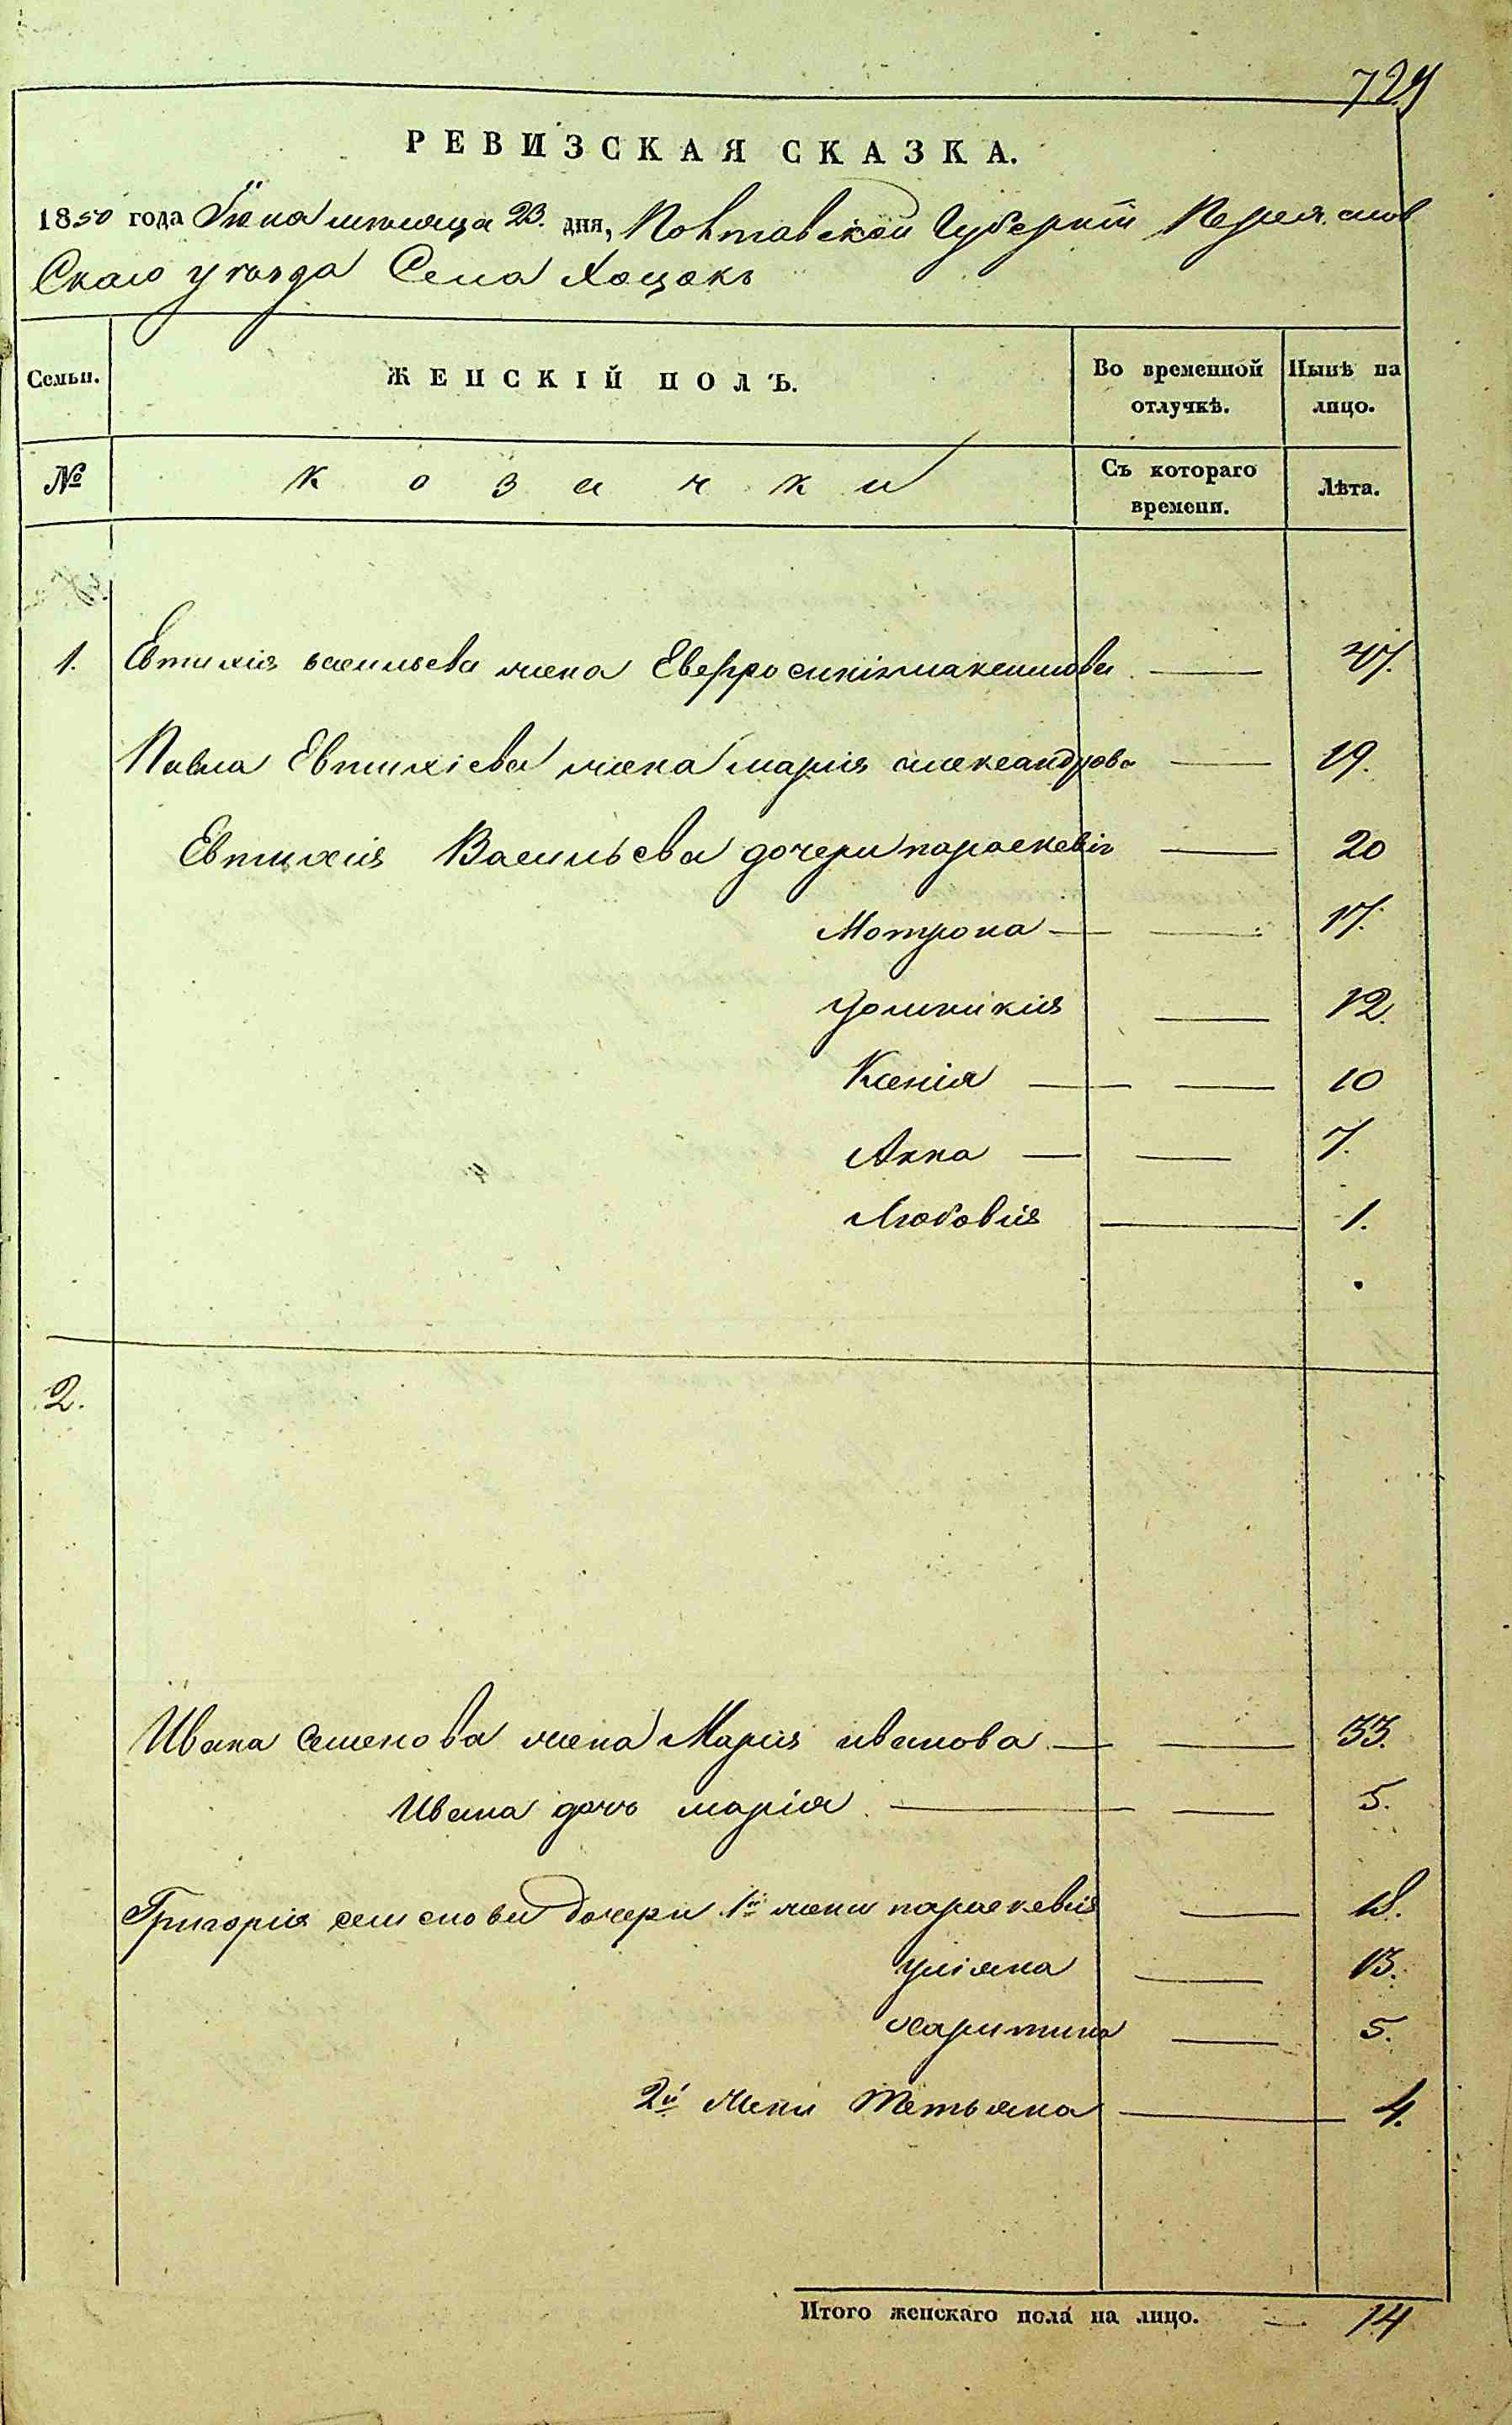 729
РЕВИЗСКАЯ СКАЗКА.
1850 года Іюна мѣсяца 23. дня, Полтавской Губерніи Переяслов
Скаго уѣзда Села Хоцокъ
Семьи.
ЖЕНСКІЙ ПОЛЪ.
Во временной отлучкѣ.
Нынѣ на лицо.
№
козачки
Съ котораго времени.
Лѣта.
1. Евтихія васильева жена Евфросинія максимова — 47.
Павла Евтихіева жена марія александрова — 19.
Евтихія Васильева дочери параскевія — 20
Мотрона — — 17.
Домникия — 12.
Ксенія — — 10
Анна — — 7.
Любовія — 1.
2.
Ивана Семенова жена Марія иванова — — 33.
Ивана дочь марія — — 5.
Григорія семенова дочери 1й жены параскевія — 18.
уліяна — 13.
харитина — 5.
2й жены Татьяна — 4.
Итого женскаго пола на лицо. — 14